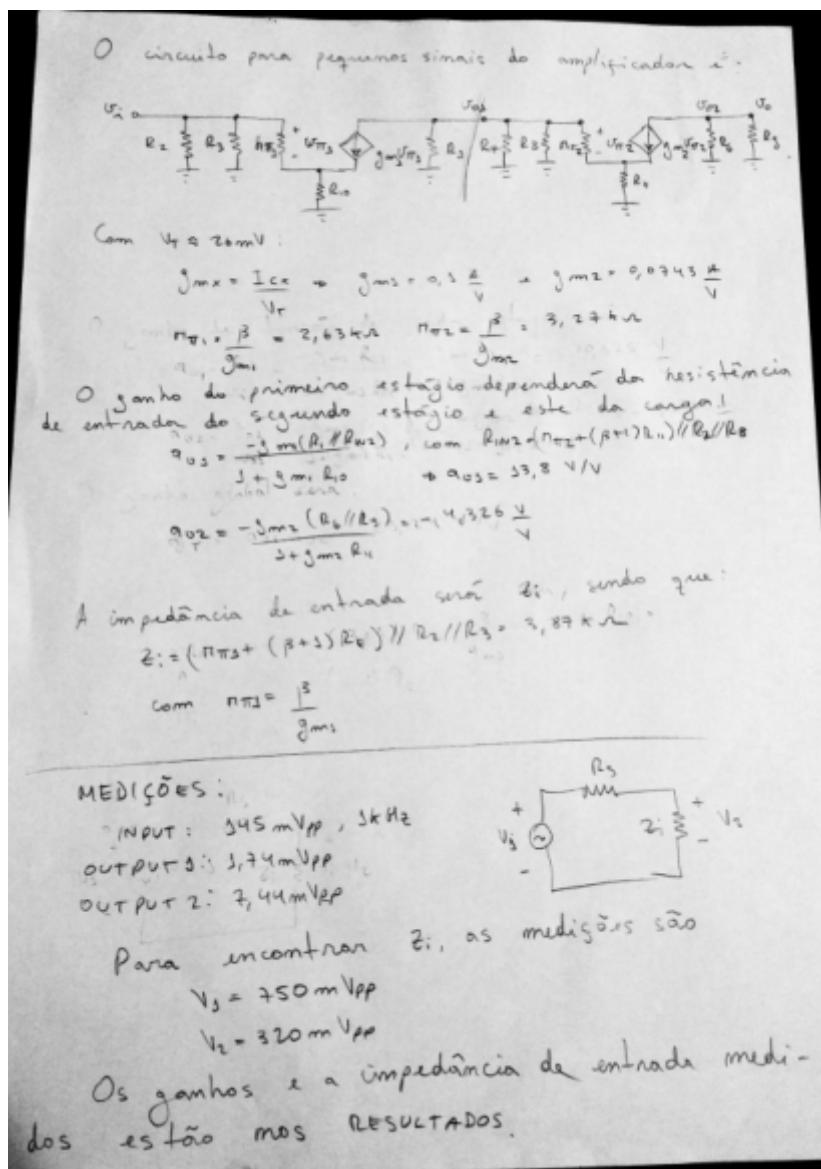 O circuito para pequenos sinais do amplificador é:
vi R2 R3 rπ1 + vπ1 - gm1vπ1 R1 vo1 R7 R8 rπ2 + vπ2 - gm2vπ2 R6 vo2 R9 vo
R10 R11
Com VT ≅ 26mV:
gmx = Icx/VT → gm1 = 0,1 A/V e gm2 = 0,0743 A/V
rπ1 = β/gm1 = 2,63 kΩ rπ2 = β/gm2 = 3,27 kΩ
O ganho do primeiro estágio dependerá da resistência
de entrada do segundo estágio e este da carga!
av1 = -gm1(R1//RIN2)/(1+gm1 R10), com RIN2=(rπ2+(β+1)R11)//R7//R8
→ av1 = 13,8 V/V
av2 = -gm2 (R6//R9)/(1+gm2 R11) = -4,326 V/V
A impedância de entrada será Zi, sendo que:
Zi = (rπ1 + (β+1)RE)//R2//R3 = 3,87 kΩ
com rπ1 = β/gm1
MEDIÇÕES:
INPUT: 145 mVpp, 1kHz
OUTPUT 1: 1,74mVpp
OUTPUT 2: 7,44mVpp
RS
+ V1 - Zi + V2 -
Para encontrar Zi, as medições são
V1 = 750 mVpp
V2 = 320 mVpp
Os ganhos e a impedância de entrada medi-
dos estão nos RESULTADOS.